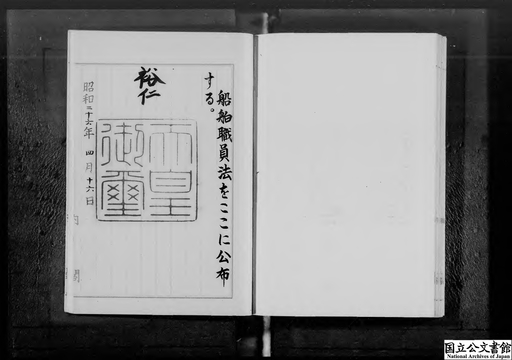 船舶職員法をここに公布
する。
裕仁
天皇
御璽
昭和二十六年 四月十六日
内閣
国立公文書館
National Archives of Japan